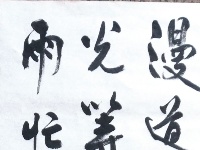 漫道
光算
雨忙